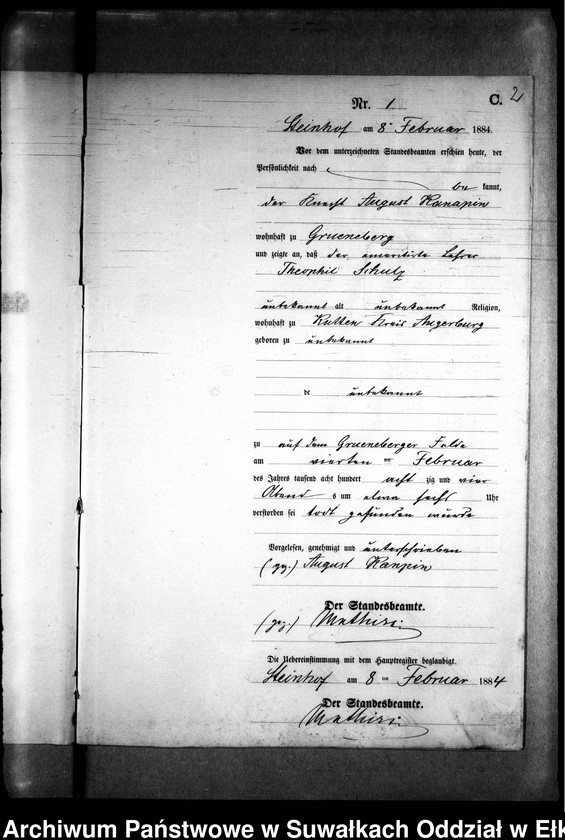 C. 2
Nr. 1
Steinhof am 8ᵗ Februar 1884.
Vor dem unterzeichneten Standesbeamten erschien heute, der
Persönlichkeit nach
be kannt,
der Knecht August Kanapin
wohnhaft zu Grueneberg
und zeigte an, daß der emeritirte Lehrer
Theophil Schulz
unbekannt alt unbekannt Religion,
wohnhaft zu Kutten Kreis Angerburg
geboren zu unbekannt
de unbekannt
zu auf dem Grueneberger Felde
am vierten ten Februar
des Jahres tausend acht hundert acht zig und vier
Abend s um etwa sechs Uhr
verstorben sei todt gefunden wurde
Vorgelesen, genehmigt und unterschrieben
(gez.) August Kanpin
Der Standesbeamte.
(gez.)
Die Uebereinstimmung mit dem Hauptregister beglaubigt.
Steinhof am 8 ten Februar 1884
Der Standesbeamte.
Archiwum Państwowe w Suwałkach Oddział w Ełk